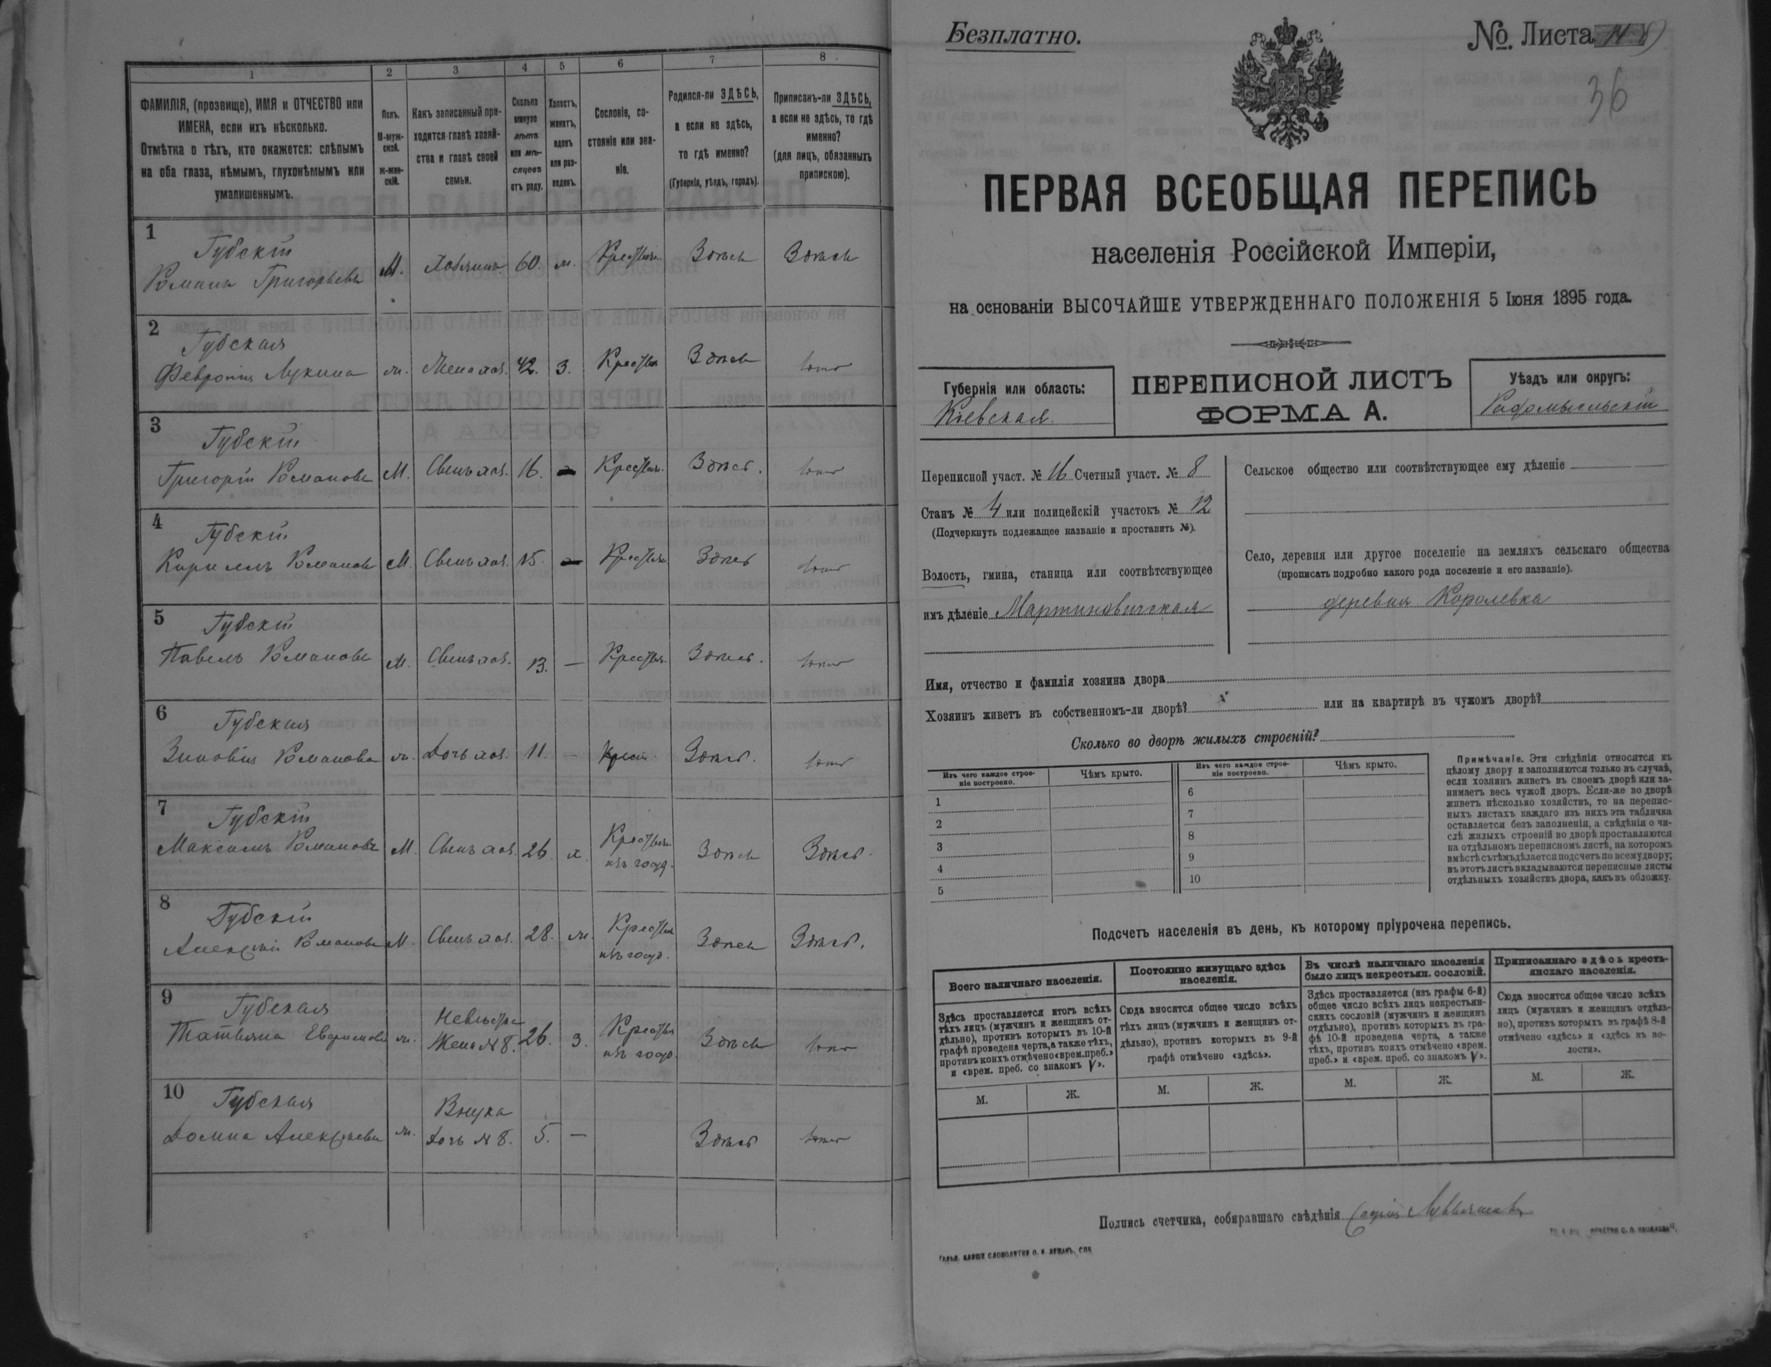 1
2
3
4
5
6
7
8
ФАМИЛІЯ, (прозвище), ИМЯ и ОТЧЕСТВО или
ИМЕНА, если ихъ нѣсколько.
Отмѣтка о тѣхъ, кто окажется: слѣпымъ
на оба глаза, нѣмымъ, глухонѣмымъ или
умалишеннымъ.
Полъ.
М-муж-
ской.
Ж-жен-
скій.
Какъ записанный при-
ходится главѣ хозяй-
ства и главѣ своей
семьи.
Сколько
минуло
лѣтъ
или мѣ-
сяцевъ
отъ роду.
Холостъ,
женатъ,
вдовъ
или раз-
веденъ.
Сословіе, со-
стояніе или зва-
ніе.
Родился-ли ЗДѢСЬ,
а если не здѣсь,
то гдѣ именно?
(Губернія, уѣздъ, городъ).
Приписанъ-ли ЗДѢСЬ,
а если не здѣсь, то гдѣ
именно?
(для лицъ, обязанныхъ
припискою).
1
Губскій
Романъ Григорьевъ
М.
Хозяинъ
60
Здѣсь
Здѣсь
2
Губская
Февронія Лукина
Жена хоз.
42.
З.
Здѣсь
3
Губскій
Григорій Романовъ
М.
Сынъ хоз.
16.
Здѣсь.
4
Губскій
Кириллъ Романовъ
М.
Сынъ хоз.
15.
—
Здѣсь
5
Губскій
Павелъ Романовъ
М.
Сынъ хоз.
13.
—
Здѣсь.
6
Губская
Зиновія Романова
Дочь хоз.
11.
—
Здѣсь.
7
Губскій
Максимъ Романовъ
М.
Сынъ хоз.
26.
х.
изъ госуд.
Здѣсь
Здѣсь.
8
Губскій
Алексѣй Романовъ
М.
Сынъ хоз.
28.
изъ госуд.
Здѣсь
Здѣсь.
9
Губская
Татьяна
Невѣстка
Жена №8.
26.
З.
изъ госуд.
Здѣсь
10
Губская
Домна Алексѣева
Внука
Дочь №8.
5.
—
Здѣсь
Безплатно.
№ Листа
36
ПЕРВАЯ ВСЕОБЩАЯ ПЕРЕПИСЬ
населенія Россійской Имперіи,
на основаніи ВЫСОЧАЙШЕ УТВЕРЖДЕННАГО ПОЛОЖЕНІЯ 5 Іюня 1895 года.
Губернія или область:
Кіевская
ПЕРЕПИСНОЙ ЛИСТЪ
ФОРМА А.
Уѣздъ или округъ:
Радомысльскій
Переписной участ. № 16 Счетный участ. № 8
Станъ № 4 или полицейскій участокъ № 12
(Подчеркнуть подлежащее названіе и проставить №).
Волость, гмина, станица или соотвѣтствующее
имъ дѣленіе Мартиновичская
Сельское общество или соотвѣтствующее ему дѣленіе
Село, деревня или другое поселеніе на земляхъ сельскаго общества
(прописать подробно какого рода поселеніе и его названіе).
деревня Королевка
Имя, отчество и фамилія хозяина двора
Хозяинъ живетъ въ собственномъ-ли дворѣ? или на квартирѣ въ чужомъ дворѣ?
Сколько во дворѣ жилыхъ строеній?
Изъ чего каждое строе-
ніе построено.
Чѣмъ крыто.
Изъ чего каждое строе-
ніе построено.
Чѣмъ крыто.
1
2
3
4
5
6
7
8
9
10
Примѣчаніе. Эти свѣдѣнія относятся къ
цѣлому двору и заполняются только въ случаѣ,
если хозяинъ живетъ въ своемъ дворѣ или за-
нимаетъ весь чужой дворъ. Если-же во дворѣ
живетъ нѣсколько хозяйствъ, то на перепис-
ныхъ листахъ каждаго изъ нихъ эта табличка
оставляется безъ заполненія, а свѣдѣнія о чи-
слѣ жилыхъ строеній во дворѣ проставляются
на отдѣльномъ переписномъ листѣ, на которомъ
вмѣстѣ съ тѣмъ дѣлается подсчетъ по всему двору;
въ этотъ листъ вкладываются переписные листы
отдѣльныхъ хозяйствъ двора, какъ въ обложку.
Подсчетъ населенія въ день, къ которому пріурочена перепись.
Всего наличнаго населенія.
Здѣсь проставляется итогъ всѣхъ
тѣхъ лицъ (мужчинъ и женщинъ от-
дѣльно), противъ которыхъ въ 10-й
графѣ проведена черта, а также тѣхъ,
противъ коихъ отмѣчено «врем. преб.»
и «врем. преб. со знакомъ V».
М.
Ж.
Постоянно живущаго здѣсь
населенія.
Сюда вносится общее число всѣхъ
тѣхъ лицъ (мужчинъ и женщинъ от-
дѣльно), противъ которыхъ въ 9-й
графѣ отмѣчено «здѣсь».
М.
Ж.
Въ числѣ наличнаго населенія
было лицъ некрестьян. сословій.
Здѣсь проставляется (изъ графы 6-й)
общее число всѣхъ лицъ некрестьян-
скихъ сословій (мужчинъ и женщинъ
отдѣльно), противъ которыхъ въ гра-
фѣ 10-й проведена черта, а также
тѣхъ, противъ коихъ отмѣчено «врем.
преб.» и «врем. преб. со знакомъ V».
М.
Ж.
Приписаннаго здѣсь кресть-
янскаго населенія.
Сюда вносится общее число всѣхъ
лицъ (мужчинъ и женщинъ отдѣль-
но), противъ которыхъ въ графѣ 8-й
отмѣчено «здѣсь» и «здѣсь въ во-
лости».
М.
Ж.
Подпись счетчика, собиравшаго свѣдѣнія